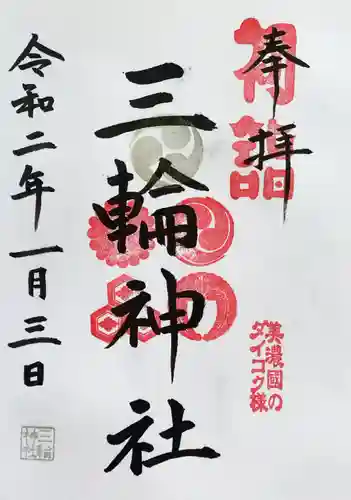 奉拝
初詣
美濃國の
ダイコク様
三輪神社
令和二年一月三日